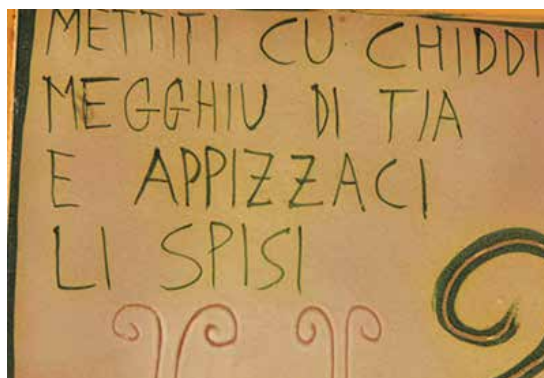 METTITI CU CHIDDI
MEGGHIU DI TIA
E APPIZZACI
LI SPISI